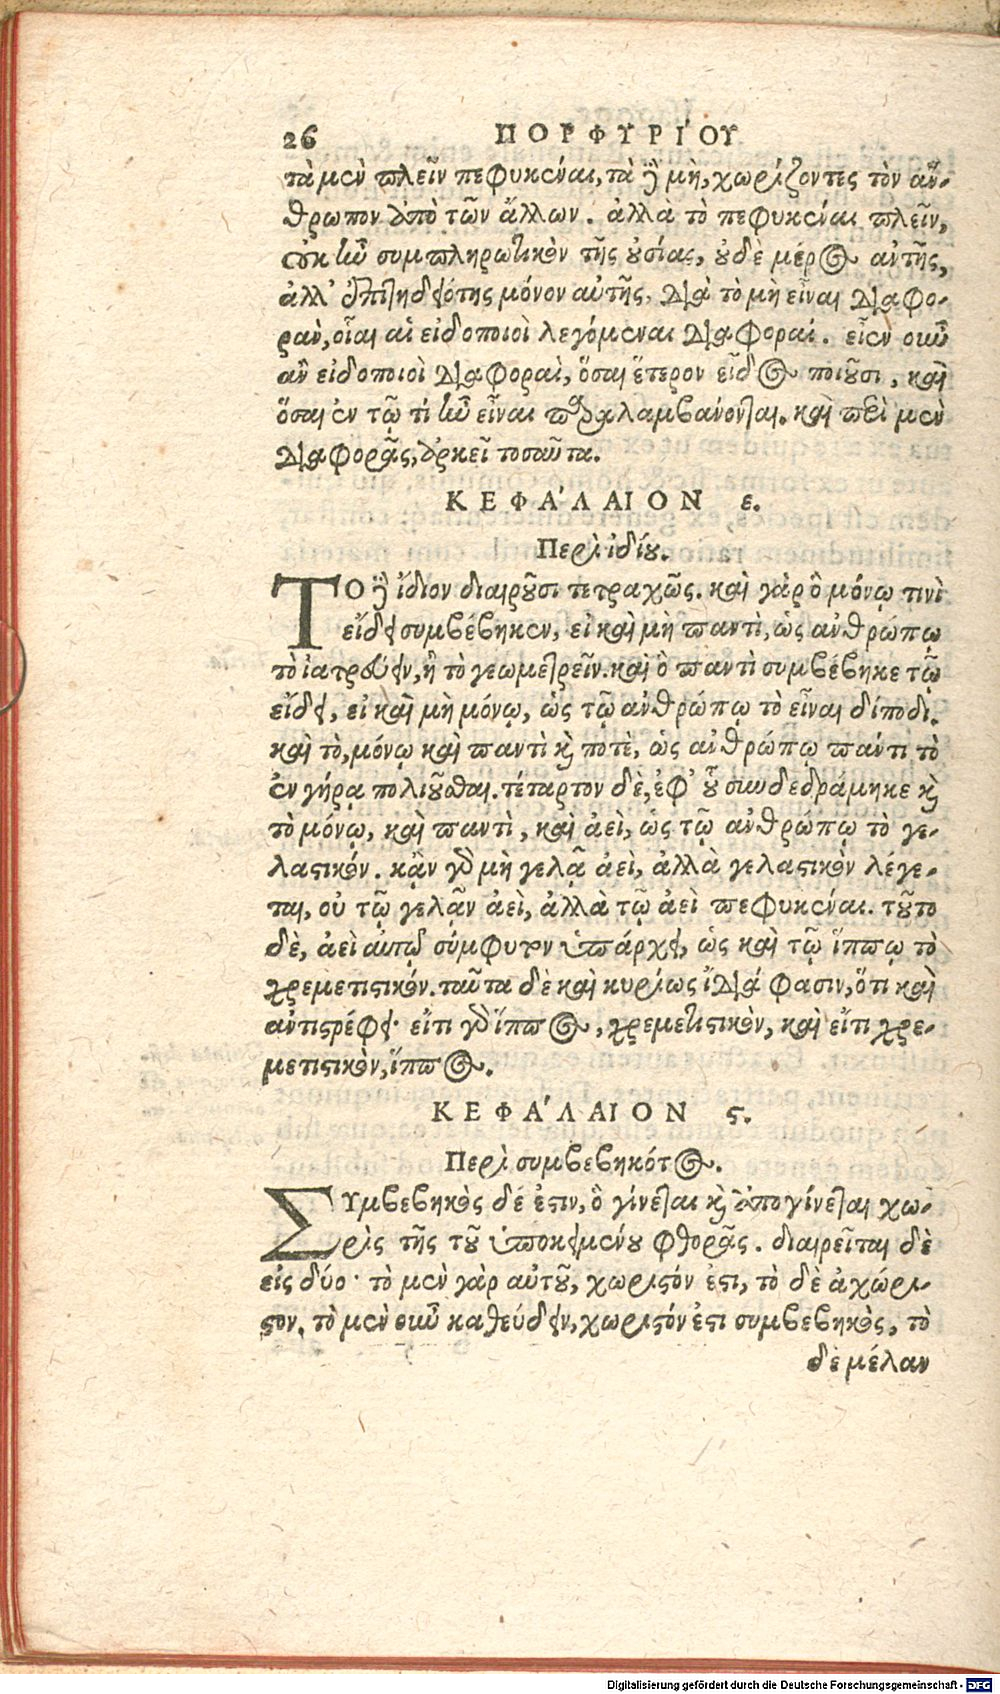 26 ΠΟΡΦΥΡΊΟΥ
τὰ μὲν πλεῖν πεφυκέναι, τὰ δὲ μὴ, χωρίζοντες τὸν ἄν-
θρωπον ἀπὸ τῶν ἄλλων. ἀλλὰ τὸ πεφυκέναι πλεῖν,
οὐκ ἦν συμπληρωτικὸν τῆς οὐσίας, οὐδὲ μέρος αὐτῆς,
ἀλλ' ἐπιτηδειότης μόνον αὐτῆς, διὰ τὸ μὴ εἶναι διαφο-
ρὰν, οἷαι αἱ εἰδοποιοὶ λεγόμεναι διαφοραί. εἶεν οὖν
ἂν εἰδοποιοὶ διαφοραὶ, ὅσαι ἕτερον εἶδος ποιοῦσι, καὶ
ὅσαι ἐν τῷ τί ἦν εἶναι παραλαμβάνονται. καὶ περὶ μὲν
διαφορᾶς, ἀρκεῖ τοσαῦτα.
ΚΕΦΆΛΑΙΟΝ ε.
Περὶ ἰδίου.
ΤΟ δὲ ἴδιον διαιροῦσι τετραχῶς. καὶ γὰρ ὃ μόνῳ τινὶ
εἴδει συμβέβηκεν, εἰ καὶ μὴ παντὶ, ὡς ἀνθρώπῳ
τὸ ἰατρεύειν, ἢ τὸ γεωμετρεῖν. καὶ ὃ παντὶ συμβέβηκε τῷ
εἴδει, εἰ καὶ μὴ μόνῳ, ὡς τῷ ἀνθρώπῳ τὸ εἶναι δίποδι.
καὶ τὸ, μόνῳ καὶ παντὶ καὶ ποτὲ, ὡς ἀνθρώπῳ παντὶ τὸ
ἐν γήρᾳ πολιοῦσθαι. τέταρτον δὲ, ἐφ' οὗ συνδεδράμηκε καὶ
τὸ μόνῳ, καὶ παντὶ, καὶ ἀεὶ, ὡς τῷ ἀνθρώπῳ τὸ γε-
λαστικόν. κἂν γὰρ μὴ γελᾷ ἀεὶ, ἀλλὰ γελαστικὸν λέγε-
ται, οὐ τῷ γελᾶν ἀεὶ, ἀλλὰ τῷ ἀεὶ πεφυκέναι. τοῦτο
δὲ, ἀεὶ αὐτῷ σύμφυτον ὑπάρχει, ὡς καὶ τῷ ἵππῳ τὸ
χρεμετιστικόν. ταῦτα δὲ καὶ κυρίως ἴδιά φασιν, ὅτι καὶ
ἀντιστρέφει· εἴτι γὰρ ἵππος, χρεμετιστικὸν, καὶ εἴτι χρε-
μετιστικὸν, ἵππος.
ΚΕΦΆΛΑΙΟΝ ϛ.
Περὶ συμβεβηκότος.
ΣΥμβεβηκὸς δέ ἐστιν, ὃ γίνεται καὶ ἀπογίνεται χω-
ρὶς τῆς τοῦ ὑποκειμένου φθορᾶς. διαιρεῖται δὲ
εἰς δύο· τὸ μὲν γὰρ αὐτοῦ, χωριστόν ἐστι, τὸ δὲ ἀχώρι-
στον. τὸ μὲν οὖν καθεύδειν, χωριστόν ἐστι συμβεβηκὸς, τὸ
δὲ μέλαν
Digitalisierung gefördert durch die Deutsche Forschungsgemeinschaft - DFG